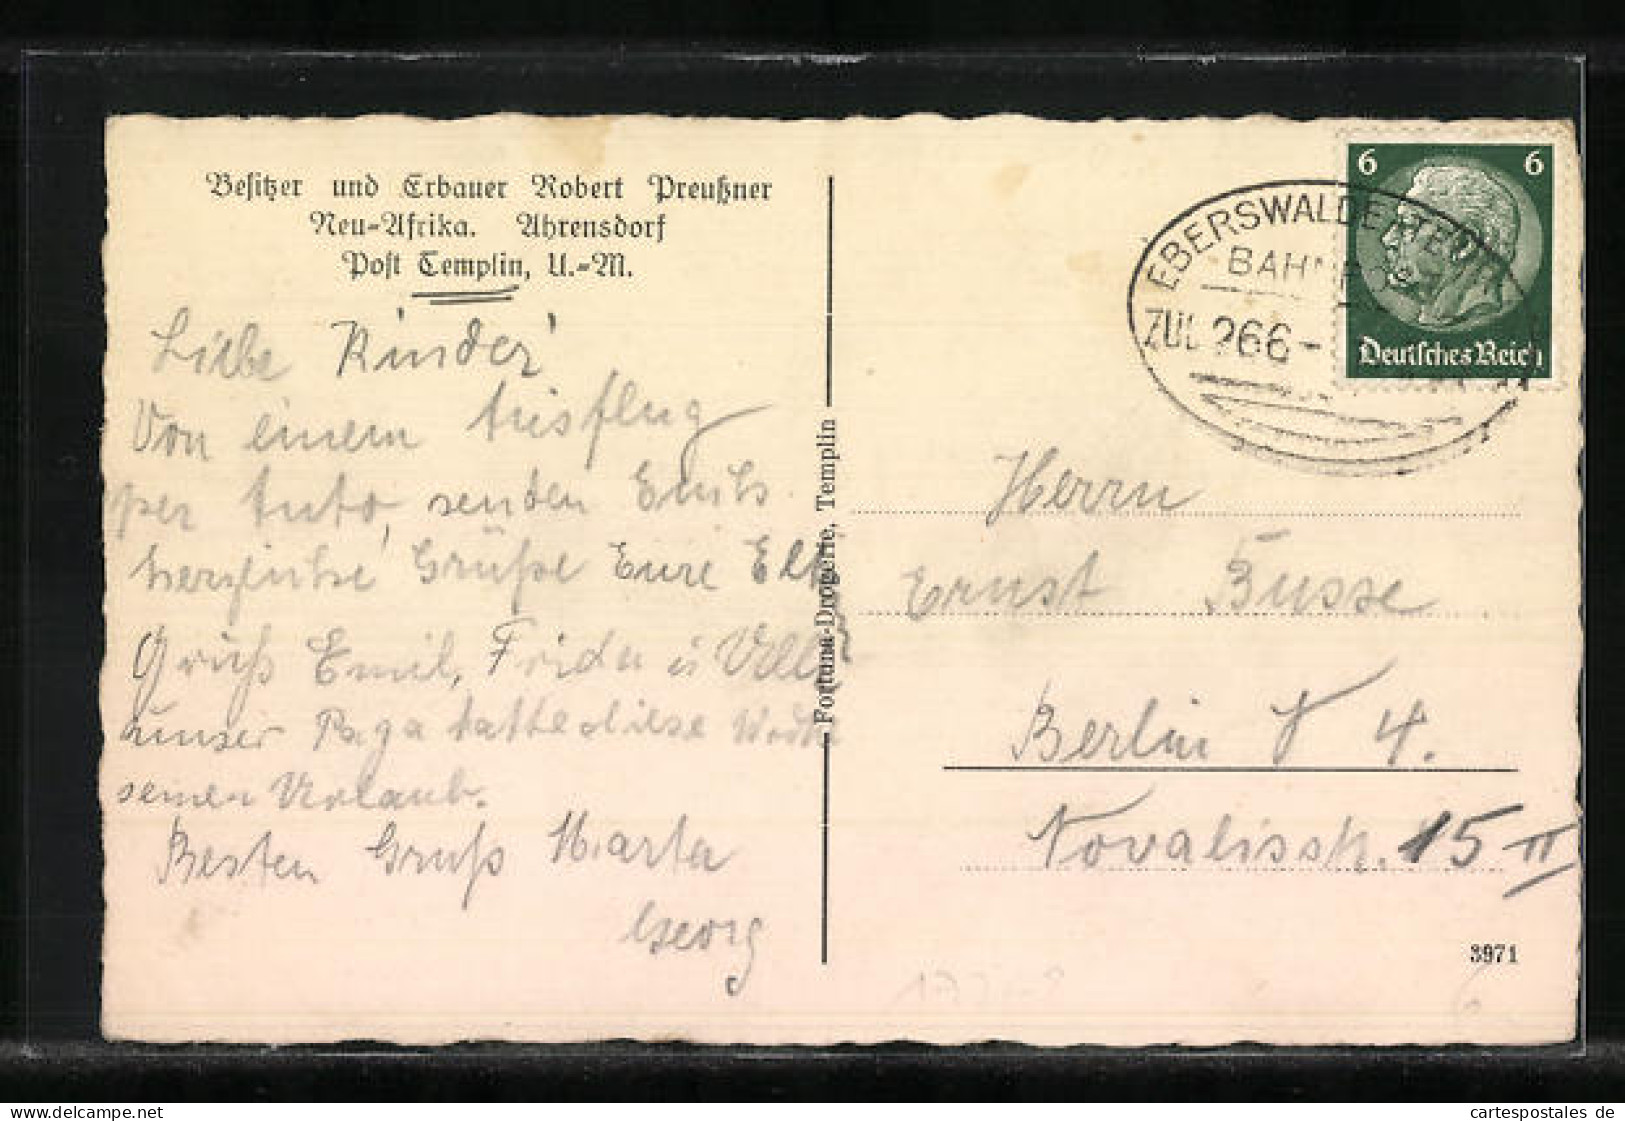 Besitzer und Erbauer Robert Preußner
Neu-Afrika. Ahrensdorf
Post Templin, U.-M.
Liebe Kinder!
Von einem Ausflug
per Auto, senden Euch
herzliche Grüße Eure Elt
Gruß Emil, Frida u
unser Papa hatte diese Woche
seinen Urlaub.
Besten Gruß Marta
Georg
Fortuna-Drogerie, Templin
EBERSWALDE-TEMPL
BAHNPOST
ZUG 266
6 6
Deutsches Reich
Herrn
Ernst Busse
Berlin N 4.
Novalisstr. 15 II
3971
your source of postcards
cartespostales de